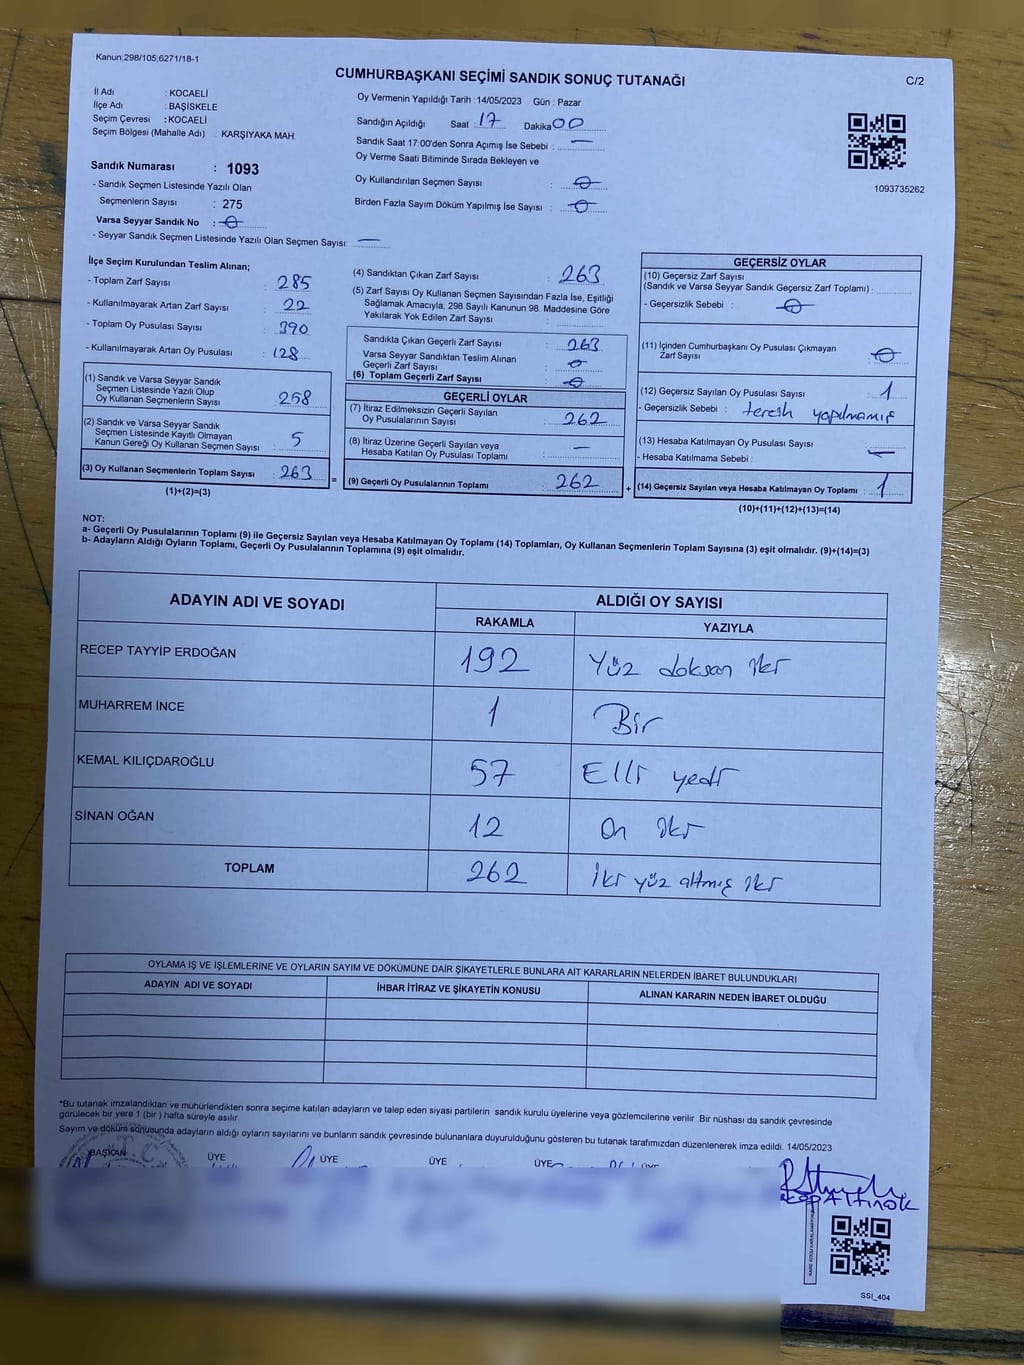 Kanun;298/105;6271/18-1
CUMHURBAŞKANI SEÇİMİ SANDIK SONUÇ TUTANAĞI
C/2
İl Adı : KOCAELİ
İlçe Adı : BAŞİSKELE
Seçim Çevresi : KOCAELİ
Seçim Bölgesi (Mahalle Adı) : KARŞIYAKA MAH.
Sandık Numarası : 1093
- Sandık Seçmen Listesinde Yazılı Olan
Seçmenlerin Sayısı : 275
Varsa Seyyar Sandık No : 0
- Seyyar Sandık Seçmen Listesinde Yazılı Olan Seçmen Sayısı: —
Oy Vermenin Yapıldığı Tarih : 14/05/2023 Gün : Pazar
Sandığın Açıldığı Saat : 17 Dakika 00
Sandık Saat 17:00'den Sonra Açımış İse Sebebi : —
Oy Verme Saati Bitiminde Sırada Bekleyen ve
Oy Kullandırılan Seçmen Sayısı : 0
Birden Fazla Sayım Döküm Yapılmış İse Sayısı : 0
1093735262
İlçe Seçim Kurulundan Teslim Alınan;
- Toplam Zarf Sayısı : 285
- Kullanılmayarak Artan Zarf Sayısı : 22
- Toplam Oy Pusulası Sayısı : 390
- Kullanılmayarak Artan Oy Pusulası : 128
(1) Sandık ve Varsa Seyyar Sandık
Seçmen Listesinde Yazılı Olup
Oy Kullanan Seçmenlerin Sayısı : 258
(2) Sandık ve Varsa Seyyar Sandık
Seçmen Listesinde Kayıtlı Olmayan
Kanun Gereği Oy Kullanan Seçmen Sayısı : 5
(3) Oy Kullanan Seçmenlerin Toplam Sayısı : 263
(1)+(2)=(3)
=
(4) Sandıktan Çıkan Zarf Sayısı : 263
(5) Zarf Sayısı Oy Kullanan Seçmen Sayısından Fazla İse, Eşitliği
Sağlamak Amacıyla; 298 Sayılı Kanunun 98. Maddesine Göre
Yakılarak Yok Edilen Zarf Sayısı :
Sandıkta Çıkan Geçerli Zarf Sayısı : 263
Varsa Seyyar Sandıktan Teslim Alınan
Geçerli Zarf Sayısı : 0
(6) Toplam Geçerli Zarf Sayısı : 0
GEÇERLİ OYLAR
(7) İtiraz Edilmeksizin Geçerli Sayılan
Oy Pusulalarının Sayısı : 262
(8) İtiraz Üzerine Geçerli Sayılan veya
Hesaba Katılan Oy Pusulası Toplamı : —
(9) Geçerli Oy Pusulalarının Toplamı : 262
+
GEÇERSİZ OYLAR
(10) Geçersiz Zarf Sayısı
(Sandık ve Varsa Seyyar Sandık Geçersiz Zarf Toplamı) :
- Geçersizlik Sebebi : 0
(11) İçinden Cumhurbaşkanı Oy Pusulası Çıkmayan
Zarf Sayısı : 0
(12) Geçersiz Sayılan Oy Pusulası Sayısı : 1
- Geçersizlik Sebebi : tercih yapılmamış
(13) Hesaba Katılmayan Oy Pusulası Sayısı
- Hesaba Katılmama Sebebi : —
(14) Geçersiz Sayılan veya Hesaba Katılmayan Oy Toplamı : 1
(10)+(11)+(12)+(13)=(14)
NOT:
a- Geçerli Oy Pusulalarının Toplamı (9) ile Geçersiz Sayılan veya Hesaba Katılmayan Oy Toplamı (14) Toplamları, Oy Kullanan Seçmenlerin Toplam Sayısına (3) eşit olmalıdır. (9)+(14)=(3)
b- Adayların Aldığı Oyların Toplamı, Geçerli Oy Pusulalarının Toplamına (9) eşit olmalıdır.
ADAYIN ADI VE SOYADI ALDIĞI OY SAYISI
RAKAMLA YAZIYLA
RECEP TAYYİP ERDOĞAN 192 Yüz doksan iki
MUHARREM İNCE 1 Bir
KEMAL KILIÇDAROĞLU 57 Elli yedi
SİNAN OĞAN 12 On iki
TOPLAM 262 İki yüz altmış iki
OYLAMA İŞ VE İŞLEMLERİNE VE OYLARIN SAYIM VE DÖKÜMÜNE DAİR ŞİKAYETLERLE BUNLARA AİT KARARLARIN NELERDEN İBARET BULUNDUKLARI
ADAYIN ADI VE SOYADI İHBAR İTİRAZ VE ŞİKAYETİN KONUSU ALINAN KARARIN NEDEN İBARET OLDUĞU
*Bu tutanak imzalandıktan ve mühürlendikten sonra seçime katılan adayların ve talep eden siyasi partilerin sandık kurulu üyelerine veya gözlemcilerine verilir .Bir nüshası da sandık çevresinde
görülecek bir yere 1 (bir ) hafta süreyle asılır.
Sayım ve döküm sonucunda adayların aldığı oyların sayılarını ve bunların sandık çevresinde bulunanlara duyurulduğunu gösteren bu tutanak tarafımızdan düzenlenerek imza edildi. 14/05/2023
BAŞKAN ÜYE ÜYE ÜYE ÜYE ÜYE
SSI_404